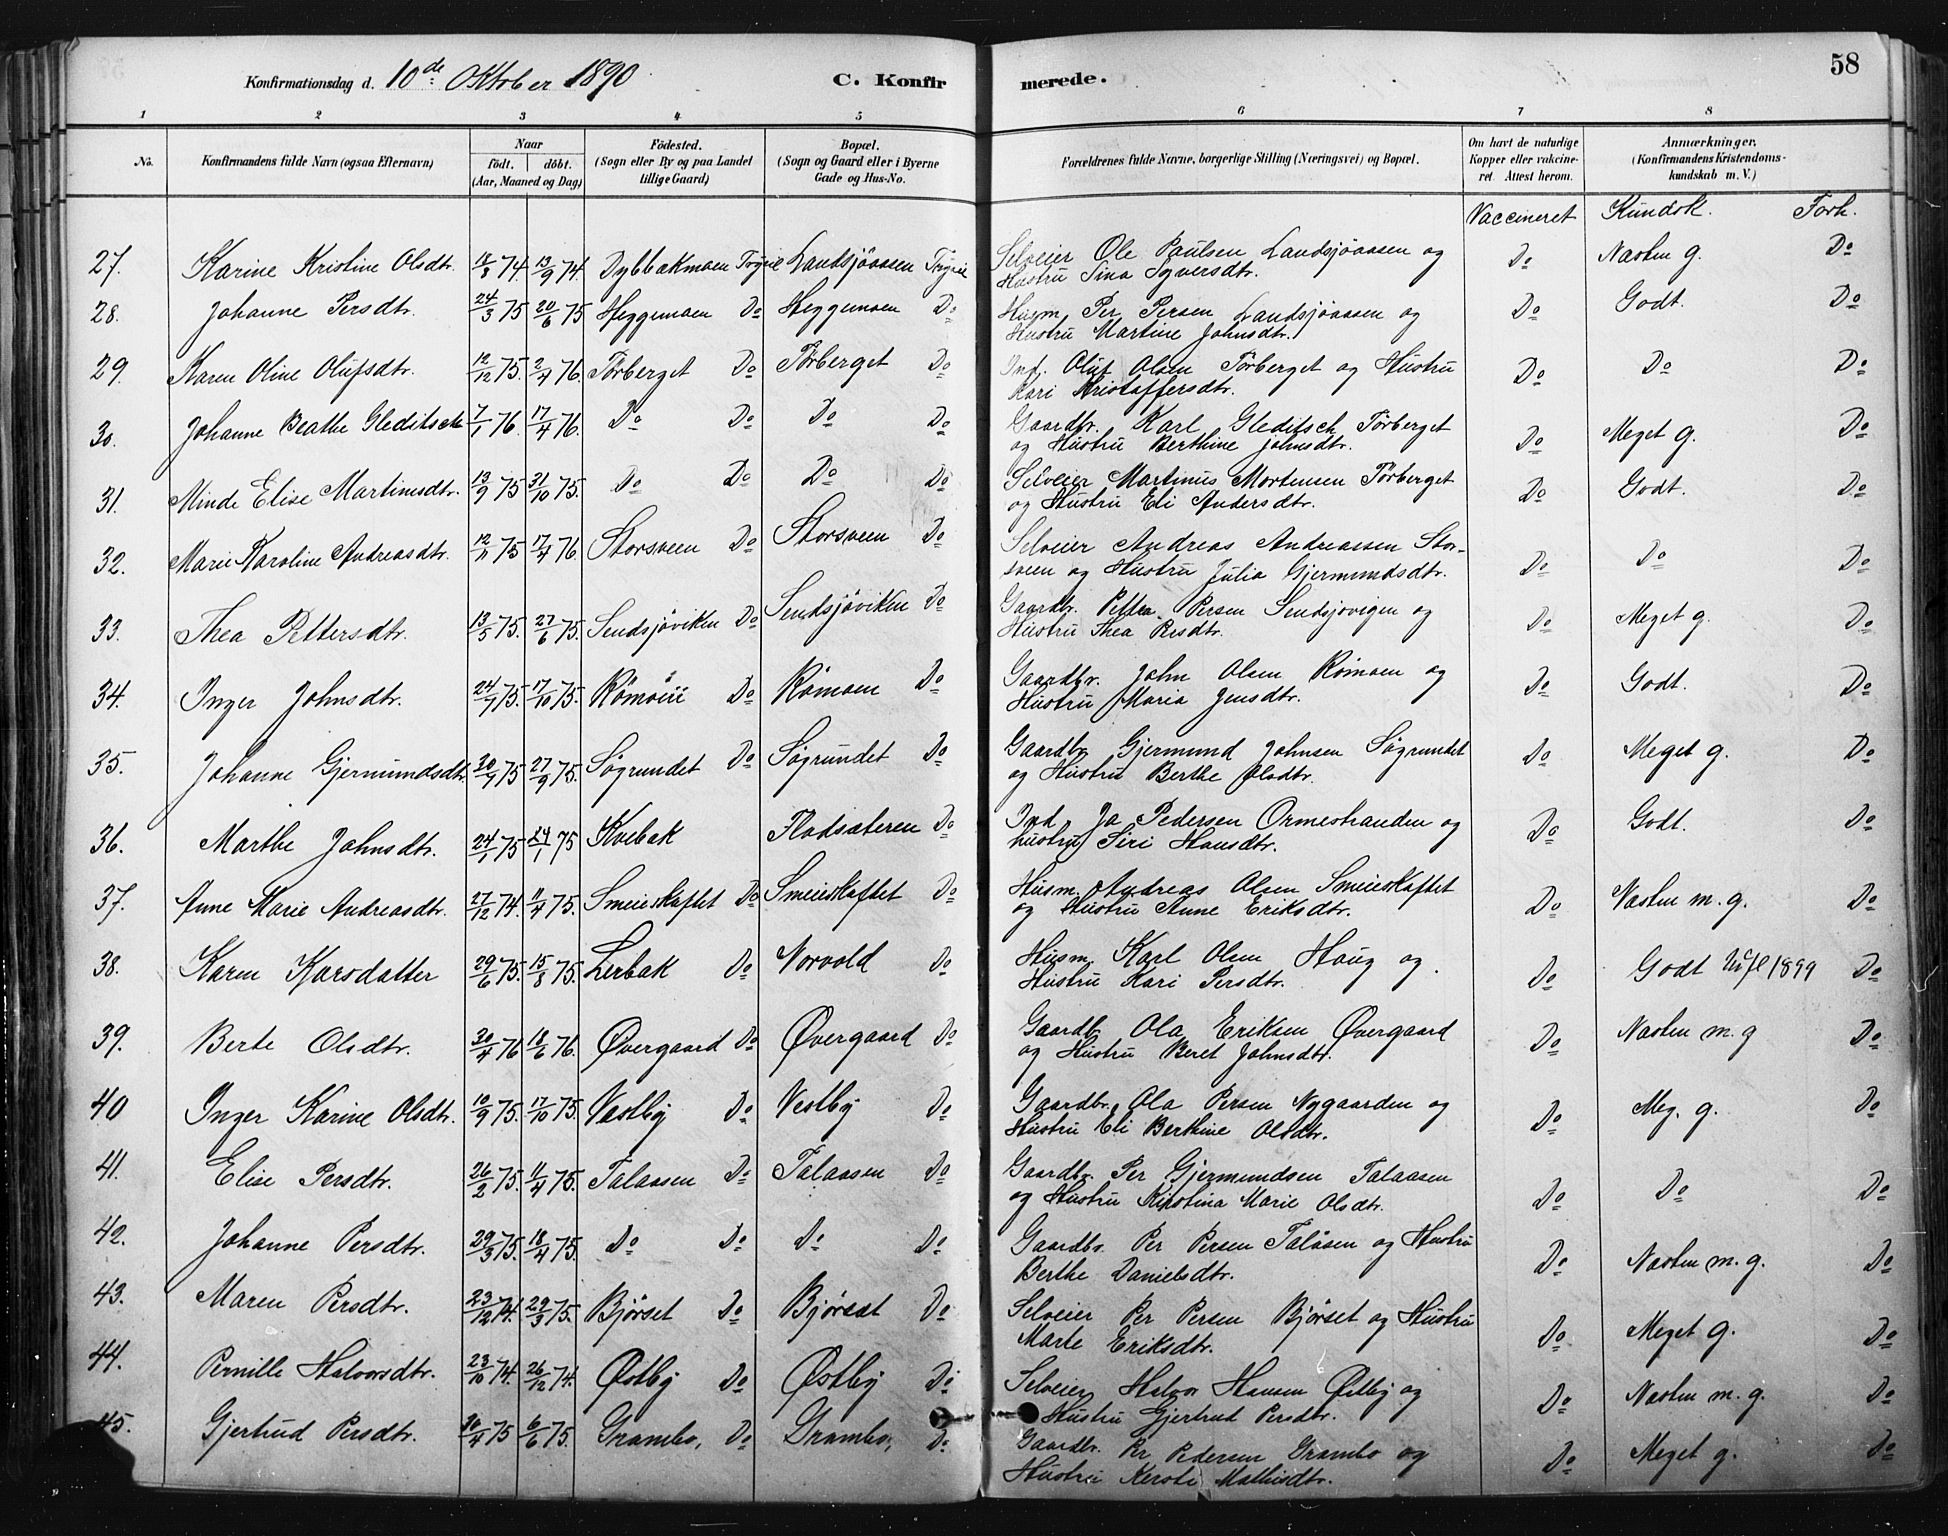 58
Konfirmationsdag d. 10de Oktober 1890 C. Konfirmerede.
1 2 3 4 5 6 7 8
No. Konfirmandens fulde Navn (ogsaa Efternavn) Naar født. døbt. (Aar, Maaned og Dag) Födested. (Sogn eller By og paa Landet tillige Gaard) Bopæl. (Sogn og Gaard eller i Byerne Gade og Hus-No. Forældrenes fulde Navne, borgerlige Stilling (Næringsvei) og Bopæl. Om havt de naturlige Kopper eller vakcineret. Attest herom. Anmærkninger. (Konfirmandens Kristendomskundskab m. V.)
Vaccineret Kundsk. Forh.
27. Karine Kristine Olsdtr. 74. 13/9 74. Landsjöaasen Selveier Ole Paulsen Landsjöaasen og Do Næsten g. Do
Hustru Sina Syversdtr.
28. Johanne Persdtr. 24/3 75 20/6 75 Heggemoen Do Heggemoen Do Husm. Per Persen Landsjöaasen og Do Godt. Do
Hustru Martine Johnsdtr.
29. Karen Oline Olufsdtr. 12/12 75. 2/4 76. Törberget Do Törberget Do Ind. Oluf Olsen Törberget og Hustru Do Do Do
Kari Kristoffersdtr.
30. Johanne Beathe Gleditsch 7/1 76. 17/4 76. Do Do Do Do Gaardbr. Karl Gleditsch Törberget Do Meget g. Do
og Hustru Berthine Johnsdtr.
31. Minde Elise Martinusdtr. 13/9 75 31/10 75. Do Do Do Do Selveier Martinus Mortensen Törberget Do Godt. Do
og Hustru Eli Andersdtr.
32. Marie Karoline Andreasdtr. 12/11 75 17/4 76. Storsveen Do Storsveen Do Selveier Andreas Andreassen Stor- Do Do Do
sveen og Hustru Julia Gjermundsdtr.
33. Thea Pettersdtr. 13/5 75. 27/6 75. Sendsjöviken Do Sendsjöviken Do Gaardbr. Petter Persen Sendsjovigen og Do Meget g. Do
Hustru Thea Persdtr.
34. Inger Johnsdtr. 24/7 75. 17/10 75. Römoen Do Römoen Do Gaardbr. John Olsen Römoen og Do Godt. Do
Hustru Maria Jensdtr.
35. Johanne Gjermundsdtr. 75 27/9 75. Søgrundet Do Søgrundet Do Gaardbr. Gjermund Johnsen Søgrundet Do Meget g. Do
og Hustru Berthe Olsdtr.
36. Marthe Johnsdtr. 24/1 75 75 Kvebak Flodsæteren Do Ind. Jo Pedersen Ormestranden og Do Godt. Do
hustru Siri Hansdtr.
37. Anne Marie Andreasdtr. 27/12 74. 11/4 75. Smeieskaftet Do Smeieskaftet Do Husm. Andreas Olsen Smeieskaftet Do Næsten m. g. Do
og Hustru Anne Eriksdtr.
38. Karen 29/6 75. 15/8 75. Lerbak Do Norvold Do Husm. Karl Olsen Haug og Do Godt Utfl 1899 Do
Hustru Kari Persdtr.
39. Berte Olsdtr. 30/4 76 18/6 76. Øvergaard Do Øvergaard Do Gaardb. Ola Eriksen Øvergaard Do Næsten m. g Do
og Hustru Beret Johnsdtr.
40 Inger Karine Olsdtr. 10/9 75. 17/10 75. Vestby Do Vestby Do Gaardbr. Ola Persen Nygaarden og Do Meg. g. Do
Hustru Eli Berthine Olsdtr.
41. Elise Persdtr. 26/2 75. 11/4 75. Talaasen Do Talaasen Do Gaardbr. Per Gjermundsen Talaasen Do Do Do
og Hustru Kirstina Marie Olsdtr.
42. Johanne Persdtr. 29/3 75. 18/4 75. Do Do Do Do Gaardbr. Per Persen Talåsen og Hustru Do Næsten m. g. Do
Berthe Danielsdtr.
43. Maren Persdtr. 23/12 74. 29/3 75. Bjørset Do Bjørset Do Selveier Per Persen Bjørset og Hustru Do Meget g. Do
Marte Eriksdtr.
44. Pernille Halvorsdtr. 23/10 74. 26/12 74. Østby Do Østby Do Selveier Halvor Hansen Østby og Do Næsten m. g. Do
Hustru Gjertrud Persdtr.
45. Gjertrud Persdtr. 75 6/6 75. Grambo, Do Grambo, Do Gaardbr. Per Pedersen Grambo og Do Meget g. Do
Hustru Kersti Mathisdtr.